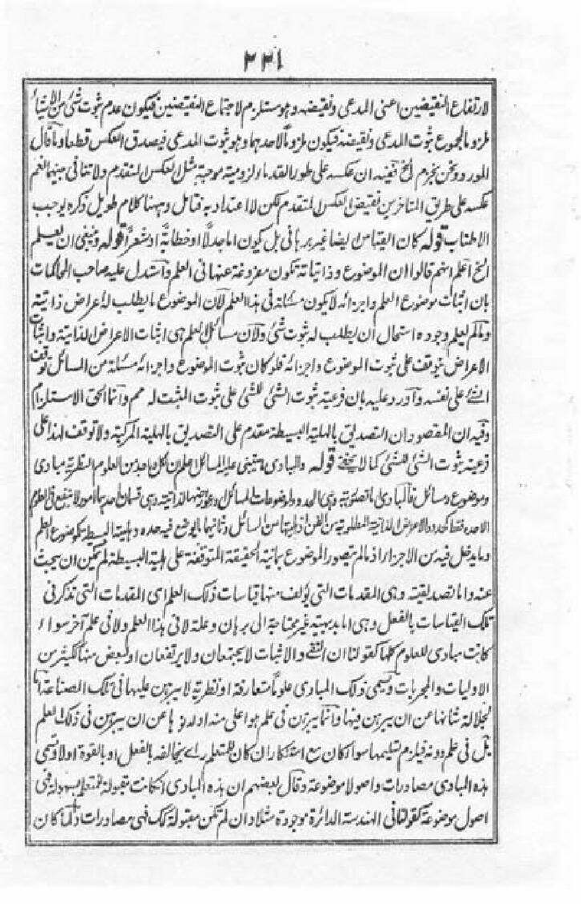 ٢٢١
لارتفاع النقيضين اعنى المدعى ونقيضه وهو مستلزم لاجتماع النقيضين فيكون عدم ثبوت شئ من الاشياء
ملزوما لمجموع ثبوت المدعى ونقيضه فيكون ملزوماً لاحدهما وهو ثبوت المدعى فيصدق العكس قطعا وما قال
المورد ونحن نجزم الخ ففيه ان عكسه على طور القدماء لزومية موجبة مثل العكس المتقدم ولا تنافى بينهما نعم
عكسه على طريق المتاخرين نقيض العكس المتقدم لكن لا اعتداد به فتامل وههنا كلام طويل ذكره يوجب
الاطناب قوله كان القياس ايضا غير برهانى بل يكون اما جدلاً او خطابةً او شعراً قوله وينبغى ان يعلم
الخ اعلم انهم قالوا ان الموضوع وذاتياته تكون مفروغة عنها فى العلم واستدل عليه صاحب المحاكمات
بان اثبات موضوع العلم واجزائه لا يكون مسئلة فى هذا العلم لان الموضوع ما يطلب له اعراض ذاتية
ومالم يعلم وجوده استحال ان يطلب له ثبوت شئ ولان مسائل العلم هى اثبات الاعراض الذاتية واثبات
الاعراض يتوقف على ثبوت الموضوع واجزائه فلو كان ثبوت الموضوع واجزائه مسئلة من المسائل توقف
الشئ على نفسه واورد عليه بان فرعية ثبوت الشئ للشئ على ثبوت المثبت له مم وانما الحق الاستلزام
وفيه ان المقصود ان التصديق بالهلية البسيطة مقدم على التصديق بالهلية المركبة ولا توقف لهذا على
فرعية ثبوت الشئ للشئ كما لا يخفى قوله والمبادى ما يبتنى عليه المسائل اعلم ان لكل واحد من العلوم النظرية مبادى
وموضوع ومسائل فالمبادى اما تصورية وهى الحدود لموضوعات المسائل
وما يدخل فيه من الاجزاء اذ مالم يتصور الموضوع بماهية الحقيقة المتوقفة على الهلية البسيطة لم يمكن ان يبحث
عنه واما تصديقية وهى المقدمات التى يؤلف منها قياسات ذلك العلم اى المقدمات التى تذكر فى
تلك القياسات بالفعل وهى اما بديهية غير محتاجة الى برهان وعلة لا فى هذا العلم ولا فى علم آخر سواء
كانت مبادى للعلوم كلها كقولنا ان النفى والاثبات لا يجتمعان ولا يرتفعان او لبعض منها ككثير من
الاوليات والمجربات وتسمى ذلك المبادى علوما متعارفة او نظرية لا يبرهن عليها فى تلك الصناعة اما
لجلالة شانها عن ان يبرهن فيها وانما يبرهن فى علم هو اعلى منه او لدنوها عن ان يبرهن فى ذلك العلم
بل فى علم دونه فيلزم تسليمها سواء كان مع استنكار ان كان للمتعلم راى يخالفه بالفعل او بالقوة اولا وتسمى
هذه المبادى مصادرات واصولا موضوعة وقال بعضهم ان هذه المبادى ان كانت مقبولة للمتعلم بسهولة فهى
اصول موضوعة كقولنا فى الهندسة الدائرة موجودة مثلا وان لم تكن مقبولة كك فهى مصادرات ولما كان